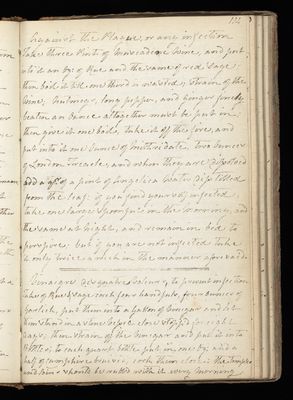 102
Against the Plague, or any infection
Take three Pints of Muscadene Wine, and put
into it an oz: of Rue and the same of red Sage;
then boil it till one third is wasted; strain of the
Wine, Nutmegs, long pepper, and Ginger finely
beaten an ounce altogether must be put in:
then give it one boil, take it off the fire, and
put into it one Ounce of Mithridate, two Ounces
of London Treacle, and when they are dissolved
add a of a point of Angelica Water distilled
from the leaf. if you find yourself infected
take one large Spoonful in the morning, and
the same at Night, and remain in bed to
perspire. but if you are not infected take
it only twice a week in the manner aforesaid.
Vinaigre de quatre Voleurs, to prevent infection
Take of Rue & Sage each four handfuls, four ounces of
Garlick, put them into a Gallon of Vinegar and let
them stand in a stone close stopped for eight
days, then strain of the Vinegar and put it into
Bottles, to each quart bottle put in one oz: and a
half of camphire bruised, cork them close: the Temples
and should be rubbed with it every morning